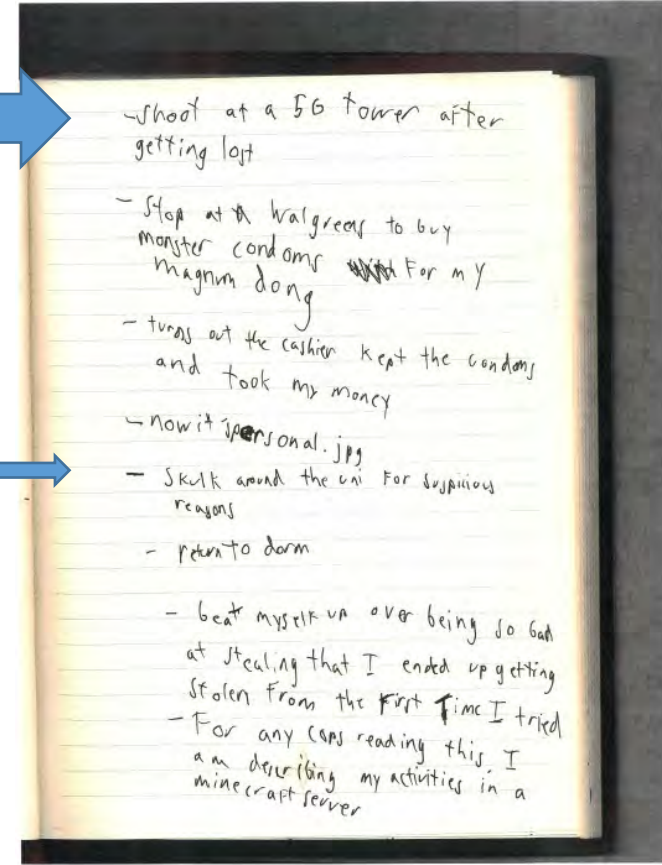 - Shoot at a 5G tower after
getting lost
- Stop at a Walgreens to buy
monster condoms for my
magnum dong
- turns out the cashier kept the condoms
and took my money
- now it's personal.jpg
- Skulk around the uni for suspicious
reasons
- return to dorm
- beat myself up over being so bad
at stealing that I ended up getting
stolen from the first time I tried
- For any cops reading this, I
am describing my activities in a
minecraft server